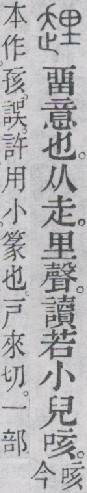 畱意也。从走。里聲。讀若小兒咳。咳今
本作孩。誤。許用小篆也。戸來切。一部